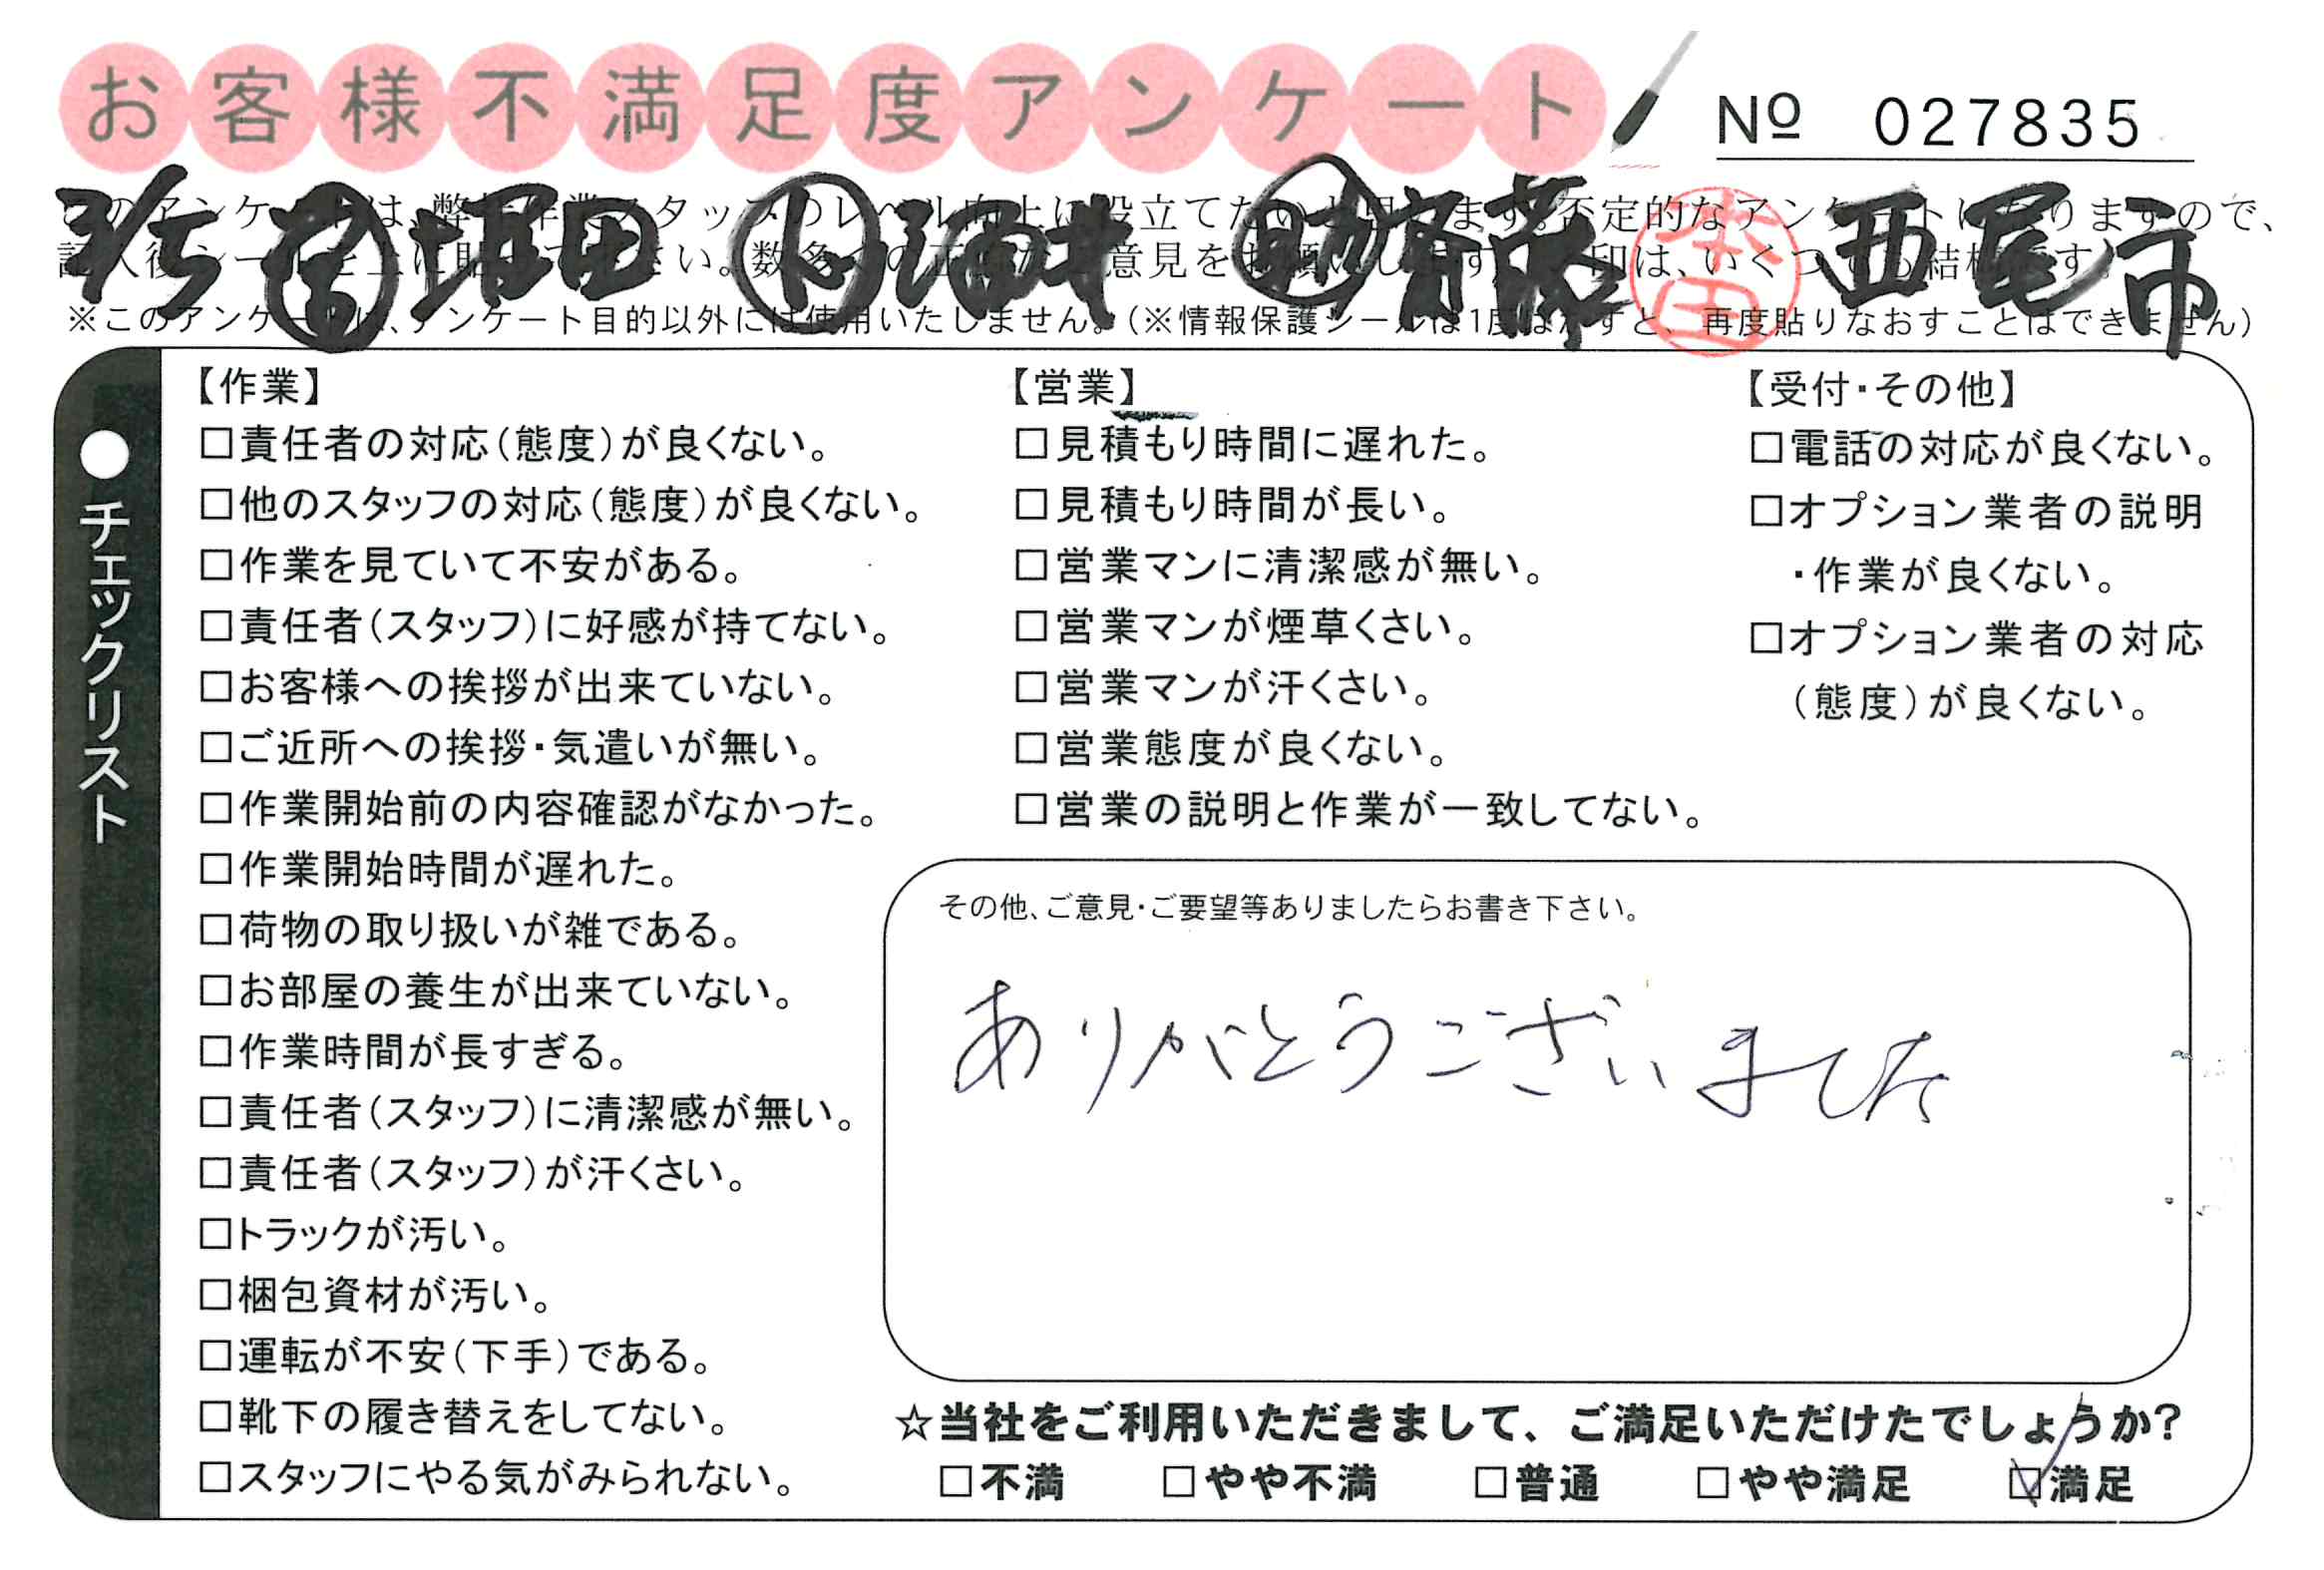 お客様不満足度アンケート
№ 027835
堀田 酒井 助 齋藤 本田 西尾市
※このアンケートは、アンケート目的以外には使用いたしません。(※情報保護シールは1度はがすと、再度貼りなおすことはできません)
●チェックリスト
【作業】
□責任者の対応(態度)が良くない。
□他のスタッフの対応(態度)が良くない。
□作業を見ていて不安がある。
□責任者(スタッフ)に好感が持てない。
□お客様への挨拶が出来ていない。
□ご近所への挨拶・気遣いが無い。
□作業開始前の内容確認がなかった。
□作業開始時間が遅れた。
□荷物の取り扱いが雑である。
□お部屋の養生が出来ていない。
□作業時間が長すぎる。
□責任者(スタッフ)に清潔感が無い。
□責任者(スタッフ)が汗くさい。
□トラックが汚い。
□梱包資材が汚い。
□運転が不安(下手)である。
□靴下の履き替えをしてない。
□スタッフにやる気がみられない。
【営業】
□見積もり時間に遅れた。
□見積もり時間が長い。
□営業マンに清潔感が無い。
□営業マンが煙草くさい。
□営業マンが汗くさい。
□営業態度が良くない。
□営業の説明と作業が一致してない。
【受付・その他】
□電話の対応が良くない。
□オプション業者の説明
・作業が良くない。
□オプション業者の対応
(態度)が良くない。
その他、ご意見・ご要望等ありましたらお書き下さい。
ありがとうございました
☆当社をご利用いただきまして、ご満足いただけたでしょうか?
□不満 □やや不満 □普通 □やや満足 ☑満足